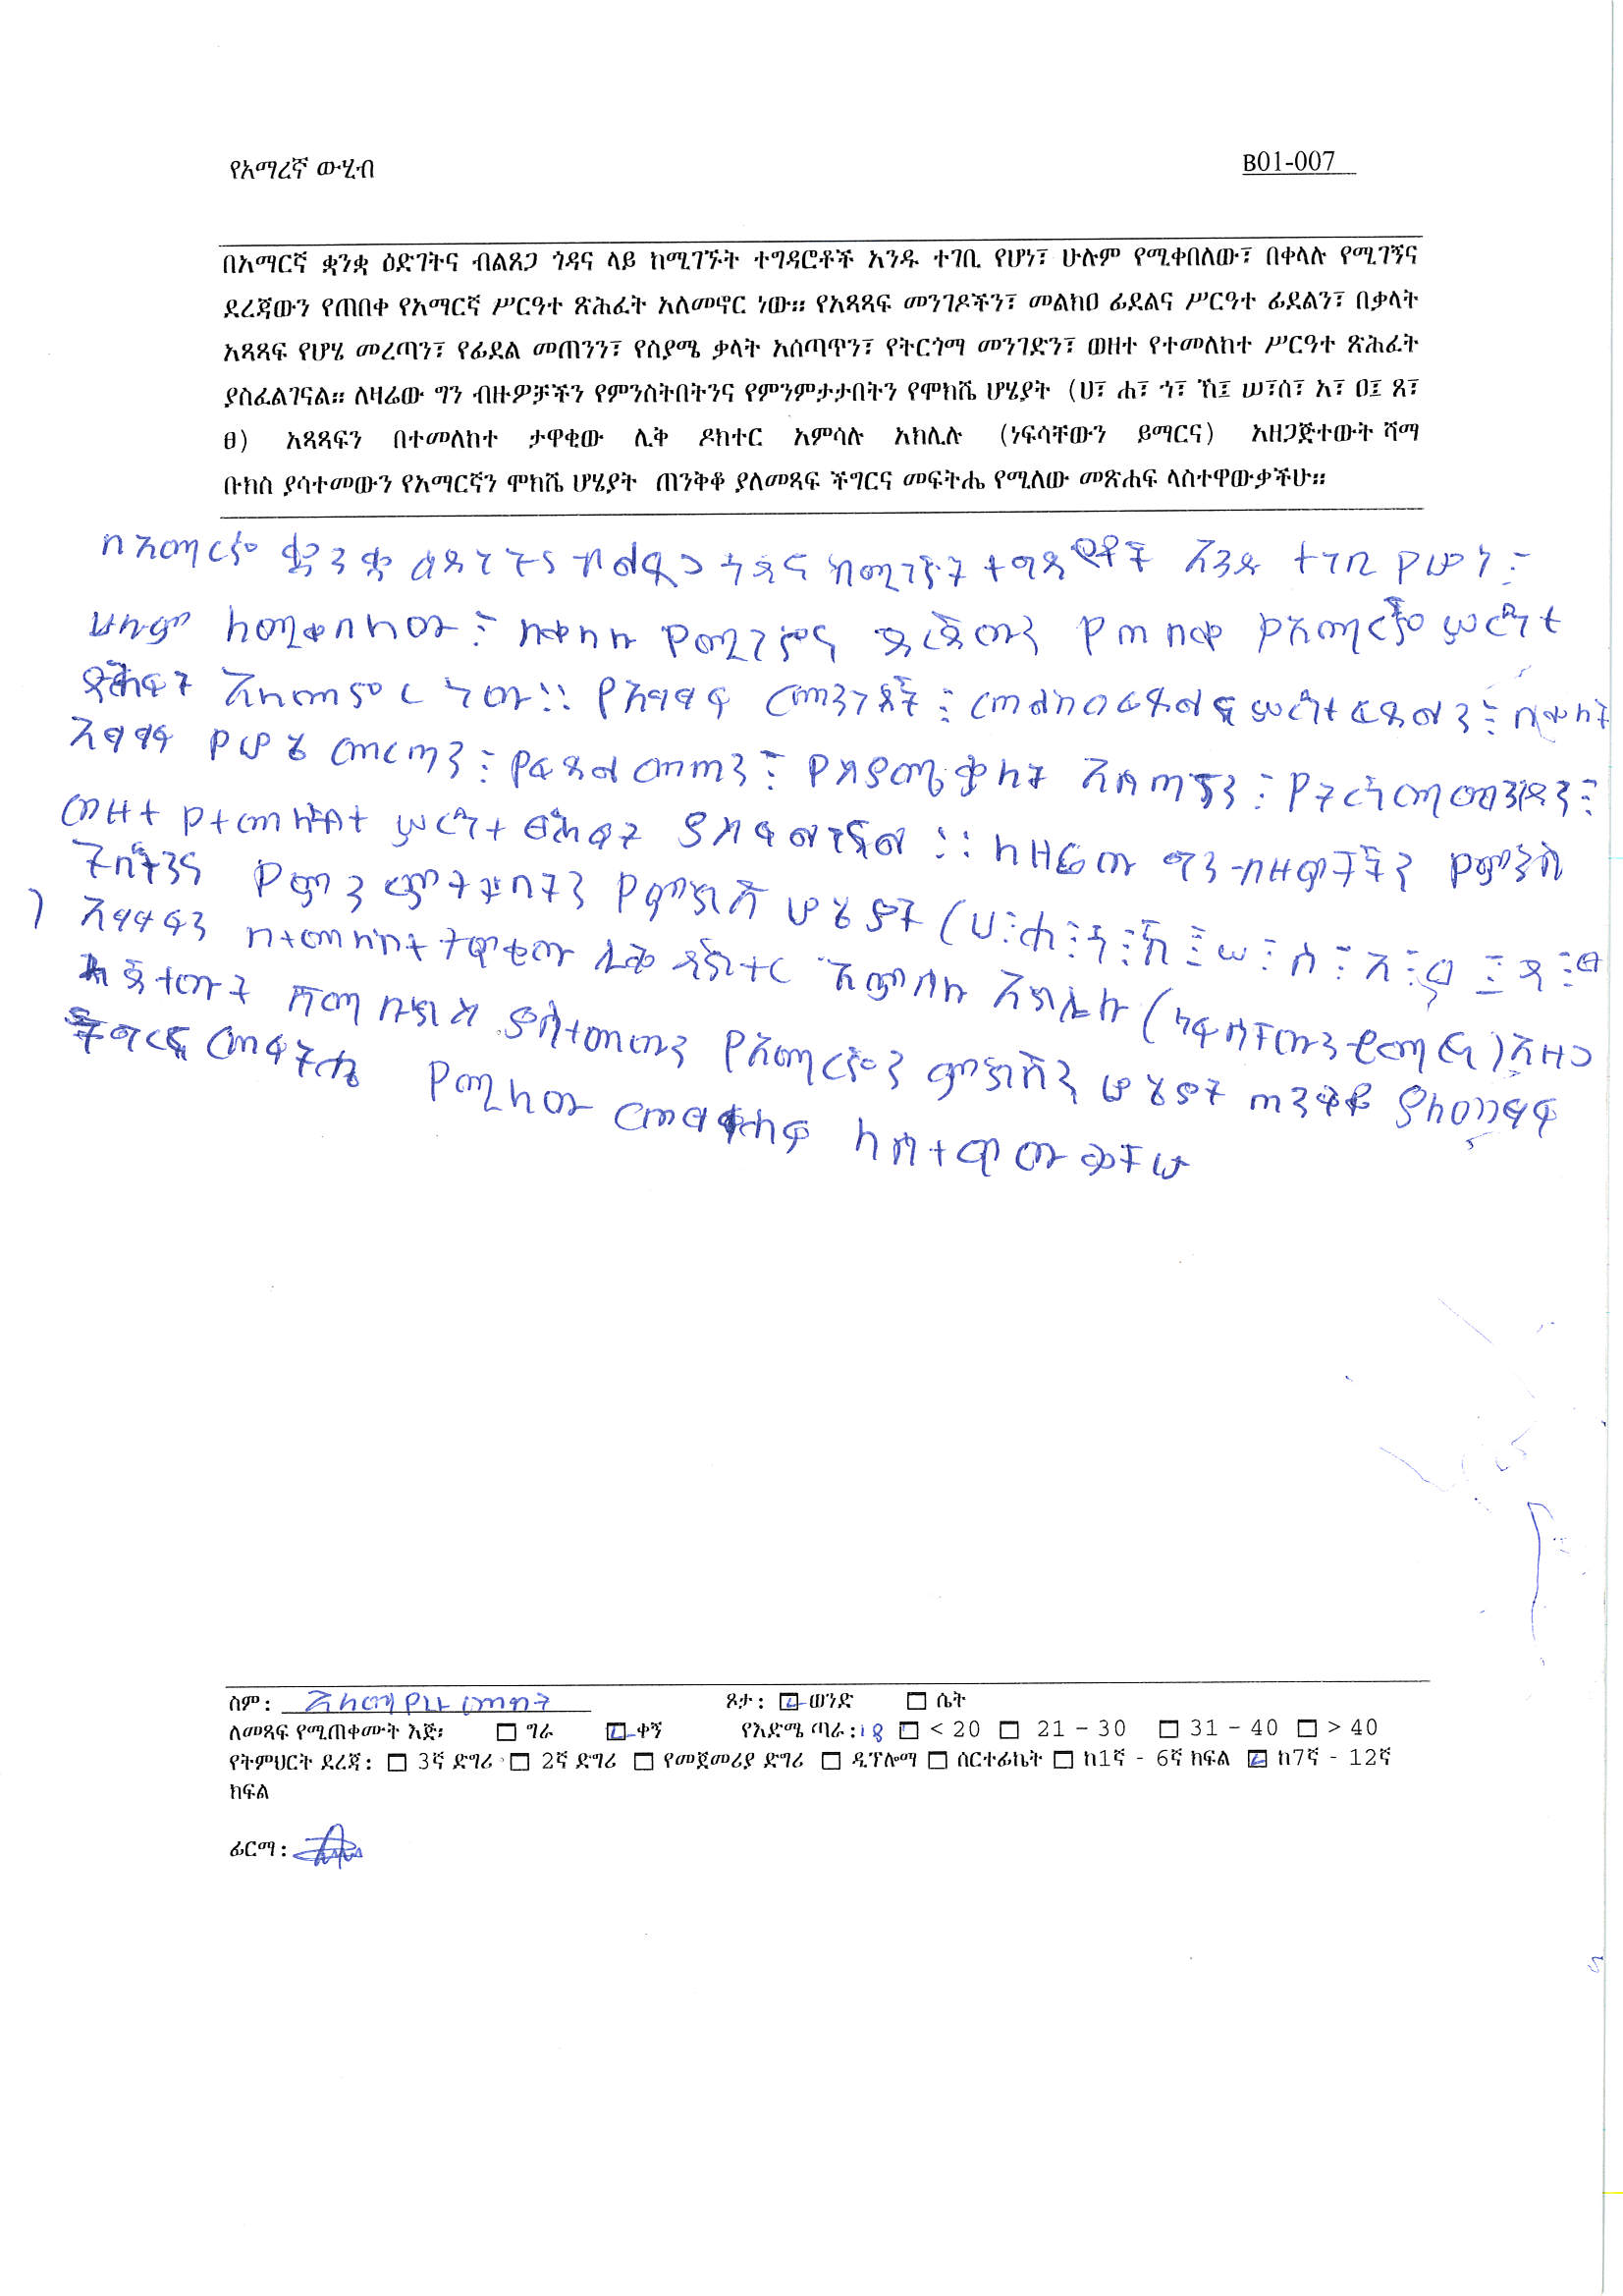 የአማረኛ ውሂብ
B01-007
በአማርኛ ቋንቋ ዕድገትና ብልጸጋ ጎዳና ላይ ከሚገኙት ተግዳሮቶች አንዱ ተገቢ የሆነ፣ ሁሉም የሚቀበለው፣ በቀላሉ የሚገኝና
ደረጃውን የጠበቀ የአማርኛ ሥርዓተ ጽሕፈት አለመኖር ነው። የአጻጻፍ መንገዶችን፣ መልክዐ ፊደልና ሥርዓተ ፊደልን፣ በቃላት
አጻጻፍ የሆሄ መረጣን፣ የፊደል መጠንን፣ የስያሜ ቃላት አሰጣጥን፣ የትርጎማ መንገድን፣ ወዘተ የተመለከተ ሥርዓተ ጽሕፈት
ያስፈልገናል። ለዛሬው ግን ብዙዎቻችን የምንስትበትንና የምንምታታበትን የሞክሼ ሆሄያት (ሀ፣ ሐ፣ ኀ፣ ኸ፤ ሠ፣ሰ፣ አ፣ ዐ፤ ጸ፣
ፀ) አጻጻፍን በተመለከተ ታዋቂው ሊቅ ዶክተር አምሳሉ አክሊሉ (ነፍሳቸውን ይማርና) አዘጋጅተውት ሻማ
ቡክስ ያሳተመውን የአማርኛን ሞክሼ ሆሄያት ጠንቅቆ ያለመጻፍ ችግርና መፍትሔ የሚለው መጽሐፍ ላስተዋውቃችሁ።
በአማርኛ ቋንቋ ዕድገትና ብልጿጋ ጎዳና ከሚገኙት ተግዳሮቶች አንዱ ተገቢ የሆነ፣
ሁሉም ከሚቀበለው፣ በቀላሉ የሚገኝና ደረጃውን የጠበቀ የአማርኛ ሥርዓተ
ጽሕፈት አለመኖር ነው። የአፃፃፍ መንገዶች፣ መልክዐ ፊደልና ሥርዓተ ፊደልን፣ በቃላት
አፃፃፍ የሆሄ መረጣን፣ የፊደል መጠን፣ የስያሜ ቃላት አሰጣጥን፣ የትርጎማ መንገድን፣
ወዘተ የተመለከተ ሥርዓተ ፅሕፈት ያስፈልገናል። ለዛሬው ግን ብዙዎቻችን የምንስ
ትበትንና የምንምታታበትን የሞክሼ ሆሄያት (ሀ፣ ሐ፣ ኀ፣ ኸ፤ ሠ፣ ሰ፣ አ፣ ዐ፤ ጸ፣ ፀ
) አፃፃፍን በተመለከተ ታዋቂው ሊቅ ዶክተር አምሳሉ አክሊሉ (ነፍሳቸውን ይማርና) አዘጋ
ጅተውት ሻማ ቡክስ ያሳተመውን የአማርኛን ሞክሼን ሆሄያት ጠንቅቆ ያለመፃፍ
ችግርና መፍትሔ የሚለው መፃሐፍ ላስተዋውቃችሁ
ስም: አለማየሁ መለሰ
ጾታ: ወንድ ሴት
ለመጻፍ የሚጠቀሙት እጅ፡ ግራ ቀኝ የእድሜ ጣራ: 18 < 20 21 - 30 31 - 40 > 40
የትምህርት ደረጃ: 3ኛ ድግሪ 2ኛ ድግሪ የመጀመሪያ ድግሪ ዲፕሎማ ሰርተፊኬት ከ1ኛ - 6ኛ ክፍል ከ7ኛ - 12ኛ
ክፍል
ፊርማ: